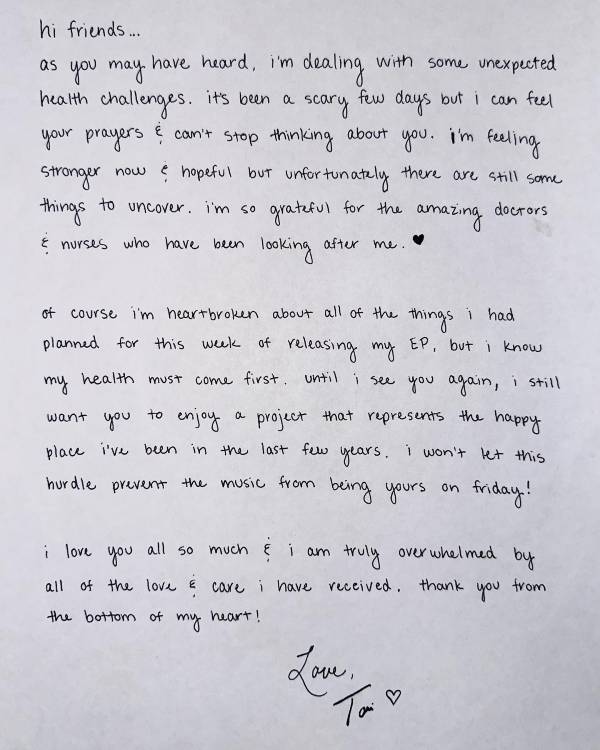 hi friends...
as you may have heard, i'm dealing with some unexpected
health challenges. it's been a scary few days but i can feel
your prayers & can't stop thinking about you. i'm feeling
stronger now & hopeful but unfortunately there are still some
things to uncover. i'm so grateful for the amazing doctors
& nurses who have been looking after me. ♥
of course i'm heartbroken about all of the things i had
planned for this week of releasing my EP, but i know
my health must come first. until i see you again, i still
want you to enjoy a project that represents the happy
place i've been in the last few years. i won't let this
hurdle prevent the music from being yours on friday!
i love you all so much & i am truly overwhelmed by
all of the love & care i have received. thank you from
the bottom of my heart!
Love,
Tori ♡